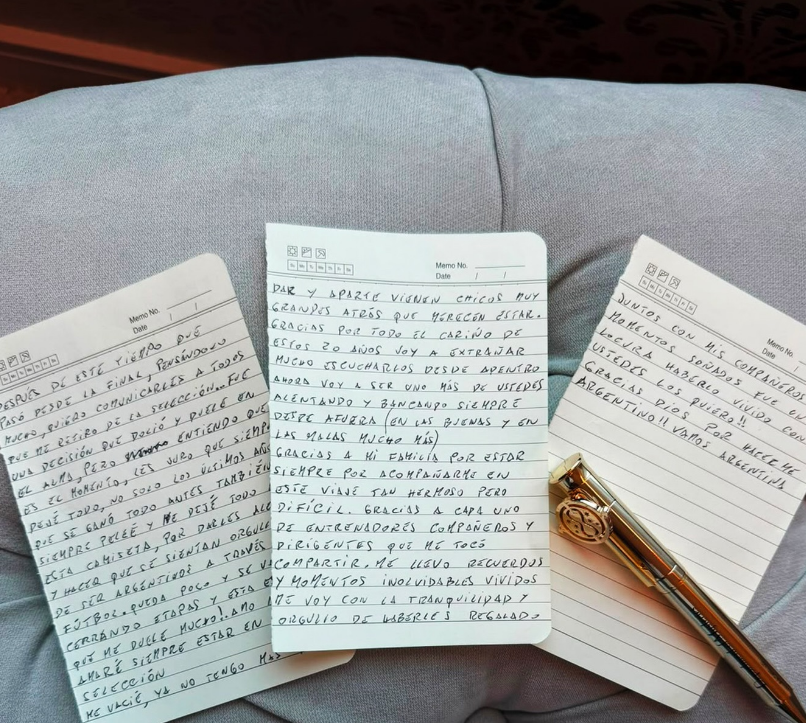 Memo No.
Date / /
DESPUÉS DE ESTE TIEMPO QUE
PASÓ DESDE LA FINAL, PENSÁNDOLO
MUCHO, QUIERO COMUNICARLES A TODOS
QUE ME RETIRO DE LA SELECCIÓN. FUE
UNA DECISIÓN QUE DOLIÓ Y DUELE EN
EL ALMA, PERO ENTIENDO QUE
ES EL MOMENTO, LES JURO QUE SIEMP
DEJÉ TODO, NO SOLO LOS ÚLTIMOS AÑ
QUE SE GANÓ TODO ANTES TAMBIÉN
SIEMPRE PELEÉ Y DEJÉ TODO
ESTA CAMISETA, POR DARLES
Y HACER QUE SE SIENTAN ORGULL
DE SER ARGENTINOS A TRAVÉS
FÚTBOL. QUEDA POCO Y SE VA
CERRANDO ETAPAS Y ESTA ES
QUE ME DUELE MUCHO! AMO
AMARÉ SIEMPRE ESTAR EN
SELECCIÓN
ME VACIÉ, YA NO TENGO MÁS
Memo No.
Date / /
DAR Y APARTE VIENEN CHICOS MUY
GRANDES ATRÁS QUE MERECEN ESTAR.
GRACIAS POR TODO EL CARIÑO DE
ESTOS 20 AÑOS VOY A EXTRAÑAR
MUCHO ESCUCHARLOS DESDE ADENTRO
AHORA VOY A SER UNO MÁS DE USTEDES
ALENTANDO Y BANCANDO SIEMPRE
DESDE AFUERA (EN LAS BUENAS Y EN
LAS MALAS MUCHO MÁS)
GRACIAS A MI FAMILIA POR ESTAR
SIEMPRE POR ACOMPAÑARME EN
ESTE VIAJE TAN HERMOSO PERO
DIFÍCIL. GRACIAS A CADA UNO
DE ENTRENADORES COMPAÑEROS Y
DIRIGENTES QUE ME TOCÓ
COMPARTIR. ME LLEVO RECUERDOS
Y MOMENTOS INOLVIDABLES VIVIDOS
ME VOY CON LA TRANQUILIDAD Y
ORGULLO DE HABERLES REGALADO
Memo No.
Date /
JUNTOS CON MIS COMPAÑEROS
MOMENTOS SOÑADOS FUE
LOCURA HABERLO VIVIDO CON
USTEDES LOS QUIERO!!
GRACIAS DIOS POR HACERME
ARGENTINO!! VAMOS ARGENTINA